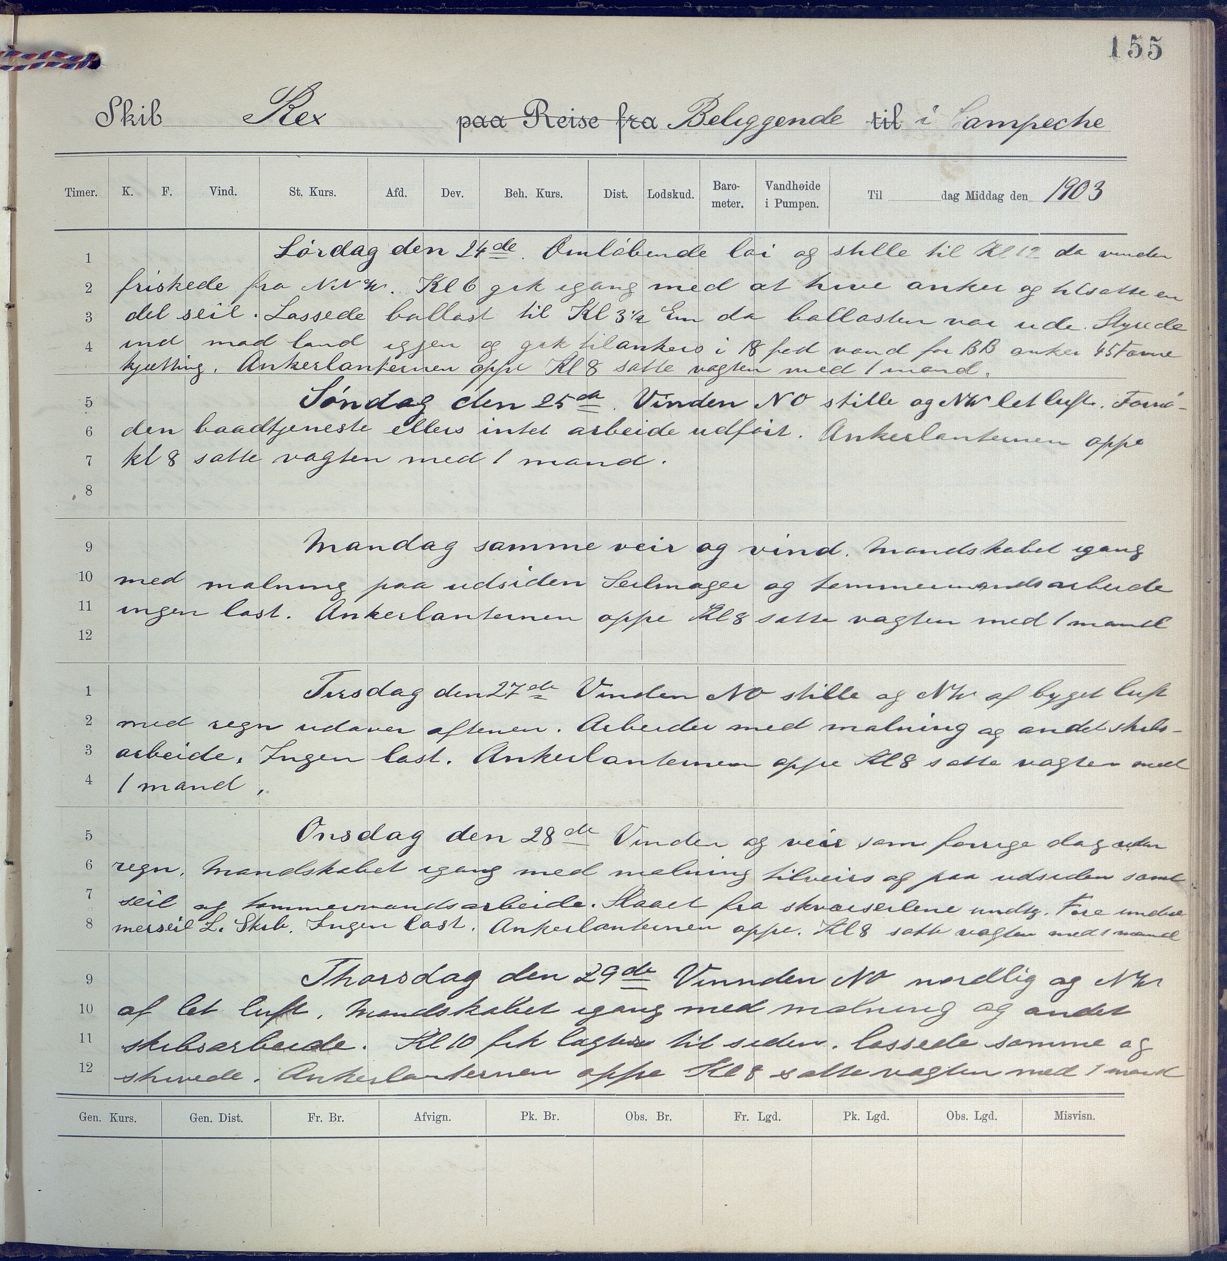 155
Skib Rex paa Reise fra Beliggende til i Campeche
Timer. K. F. Vind. St. Kurs. Afd. Dev. Beh. Kurs. Dist. Lodskud. Baro-meter. Vandhøide i Pumpen. Til dag Middag den 1903
1 Lørdag den 24de. Omløbende løi og stille til Kl 12 da vinden
2 friskede fra NNW. Kl 6 gik igang med at hive anker og tilsatte en
3 del seil. Lossede ballast til Kl 3½ Em da ballasten var ude. Styrede
4 ind mod land igjen og gik tilankers i 18 fod vand for BB anker 45 Favne
kjætting. Ankerlanternen oppe Kl 8 satte vagten med 1 mand.
5 Søndag den 25de. Vinden NO stille og NW let luft. Fornø-
6 den baadtjeneste ellers intet arbeide udført. Ankerlanternen oppe
7 kl 8 satte vagten med 1 mand.
8
9 Mandag samme veir og vind. Mandskabet igang
10 med malning paa udsiden Seilmager og tømmermandsarbeide
11 ingen last. Ankerlanternen oppe Kl 8 satte vagten med 1 mand
12
1 Tirsdag den 27de Vinden NO stille og NW af byget luft
2 med regn udover aftenen. Arbeider med malning og andet skibs-
3 arbeide. Ingen last. Ankerlanternen oppe Kl 8 satte vagten med
4 1 mand.
5 Onsdag den 28de Vinden og veir som forrige dag uden
6 regn. Mandskabet igang med malning tilveirs og paa udsiden samt
7 seil og tømmermandsarbeide. Slaaet fra skværseilene undtg. Fore undre
8 merseil L. Skib. Ingen last. Ankerlanternen oppe. Kl 8 satte vagten med 1 mand
9 Thorsdag den 29de Vinnden NO nordlig og NW
10 af let luft. Mandskabet igang med malning og andet
11 skibsarbeide. Kl 10 fik lagter til siden. lossede samme og
12 stuvede. Ankerlanternen oppe Kl 8 satte vagten med 1 mand
Gen. Kurs. Gen. Dist. Fr. Br. Afvign. Pk. Br. Obs. Br. Fr. Lgd. Pk. Lgd. Obs. Lgd. Misvisn.